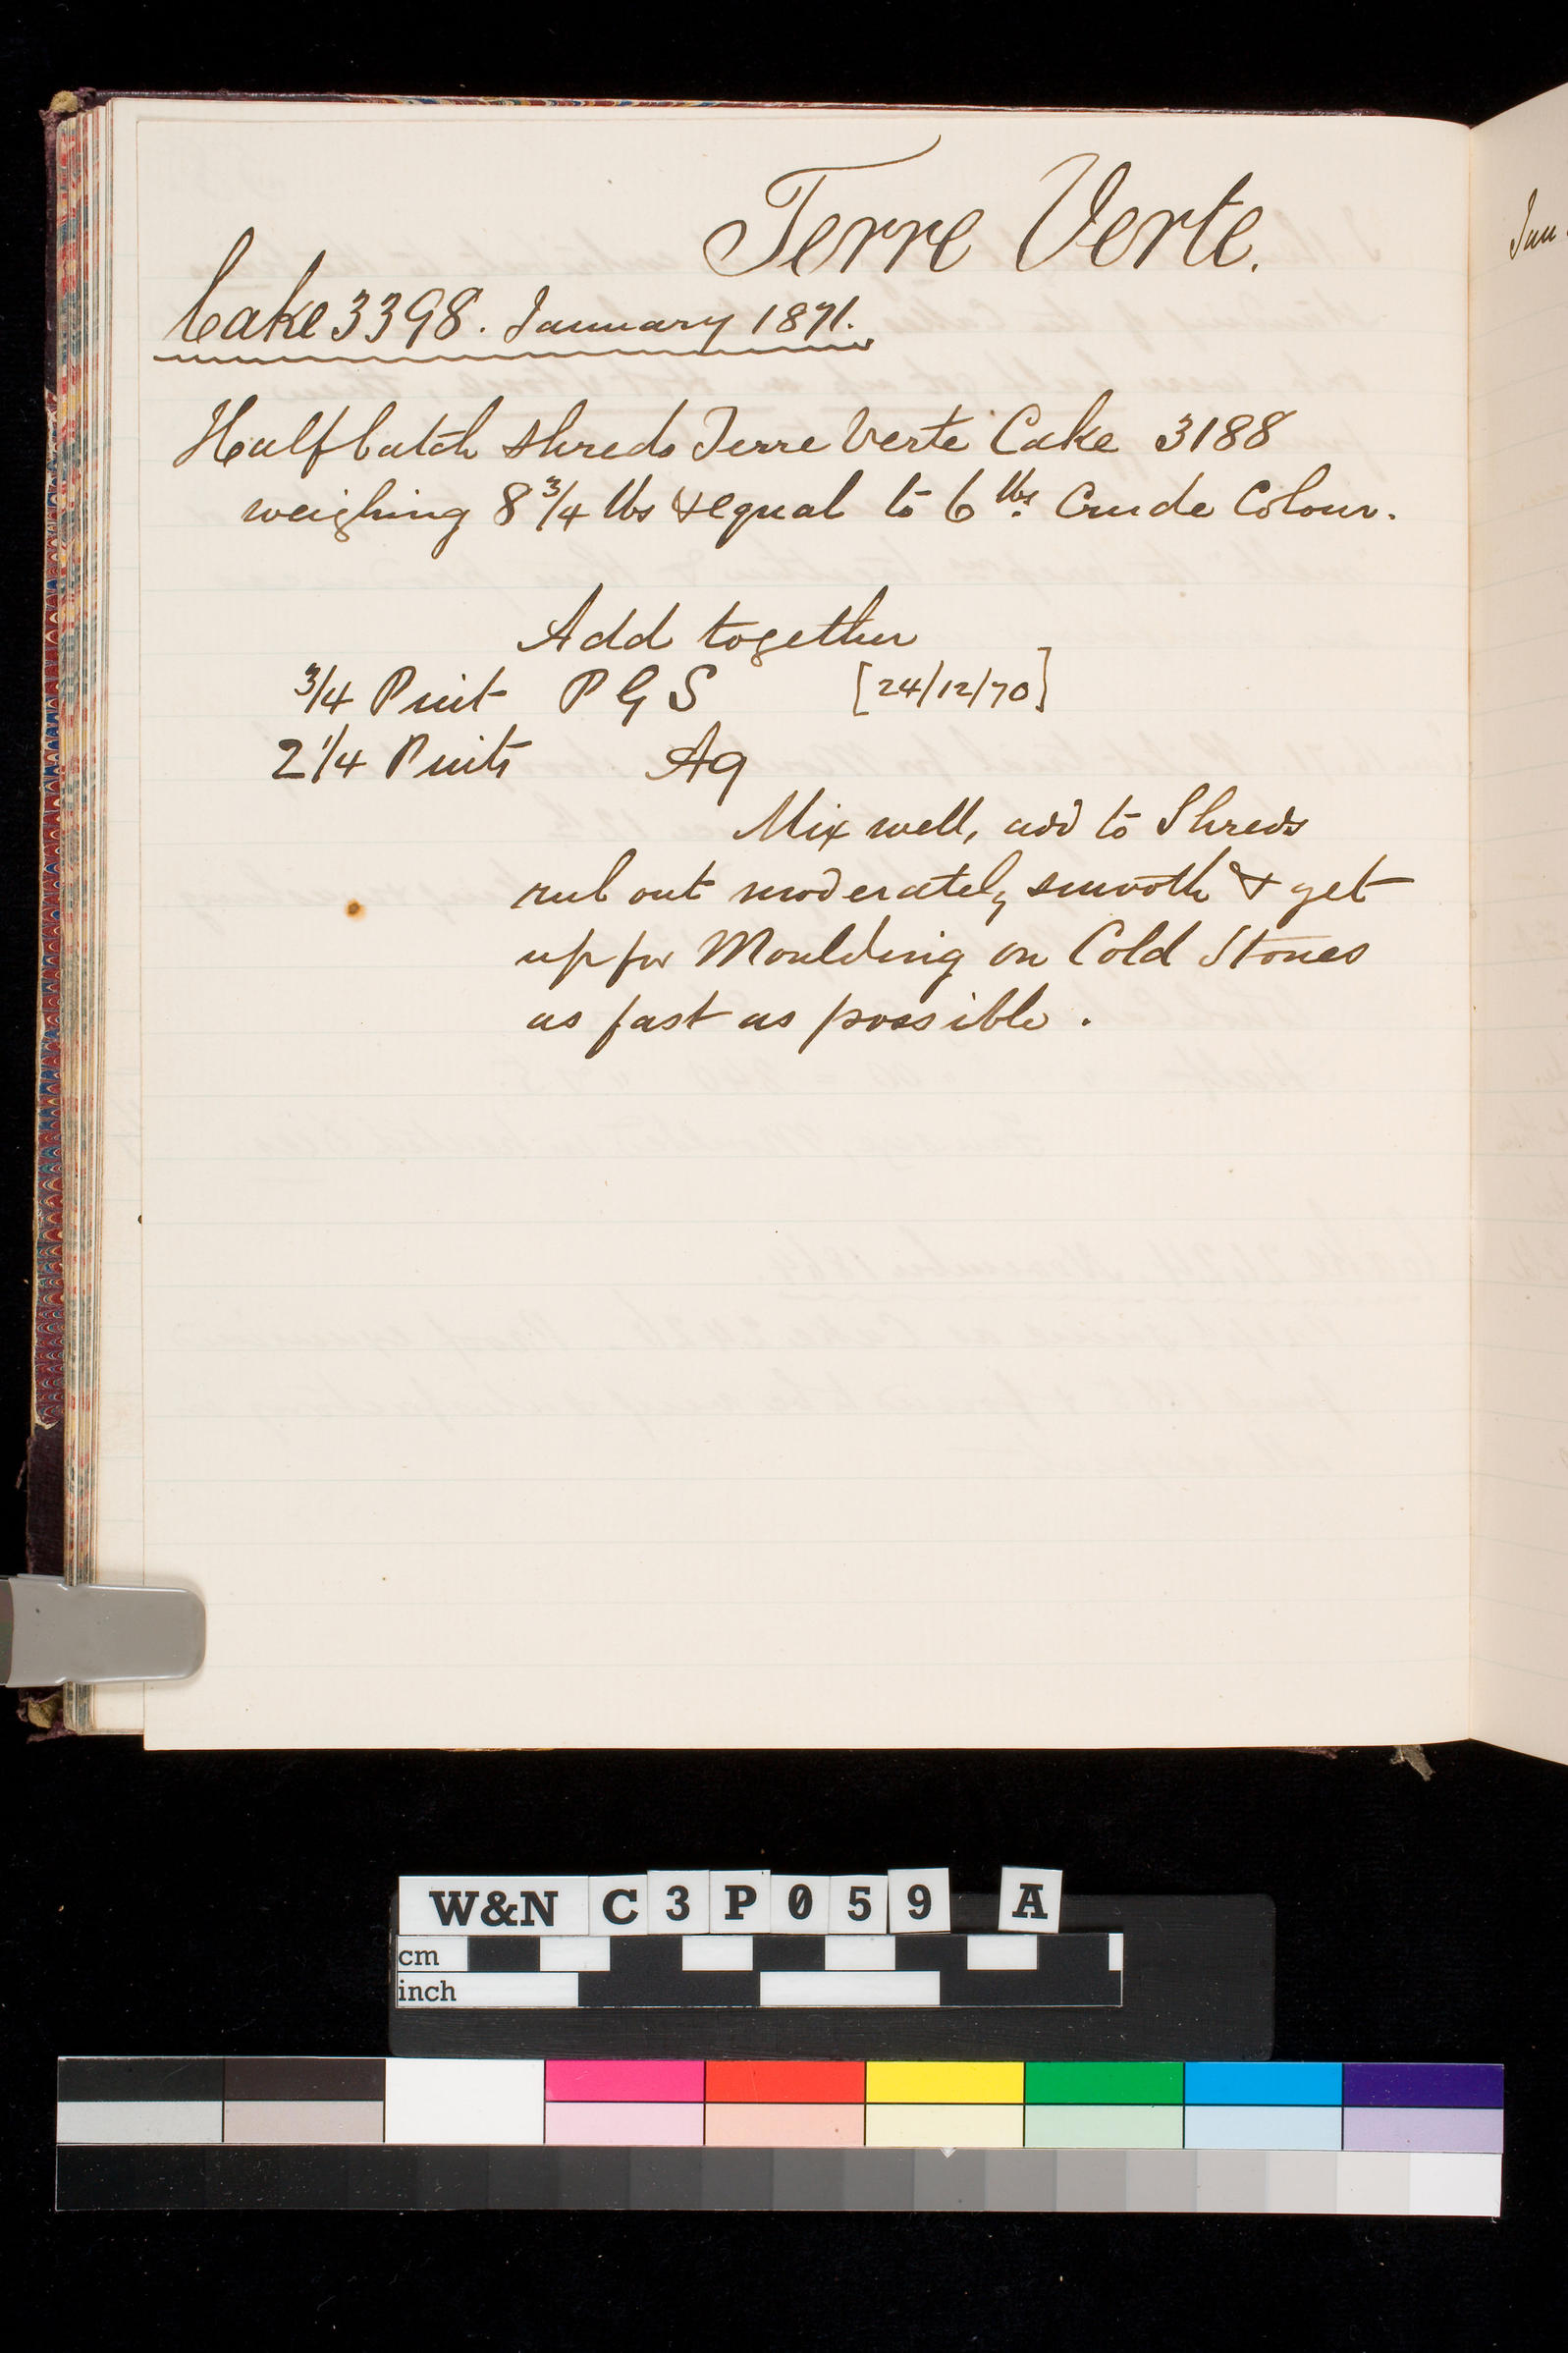 Terre Verte.
Cake 3398. January 1871.
Half batch shreds Terre Verte Cake 3188
weighing 8 3/4 lbs & equal to 6 lbs. Crude Colour.
Add together
3/4 Pint P G S [24/12/70]
2 1/4 Pints Aq
Mix well, add to Shreds
rub out moderately smooth & get
up for Moulding on Cold Stones
as fast as possible .
W&N C3P059 A
cm
inch